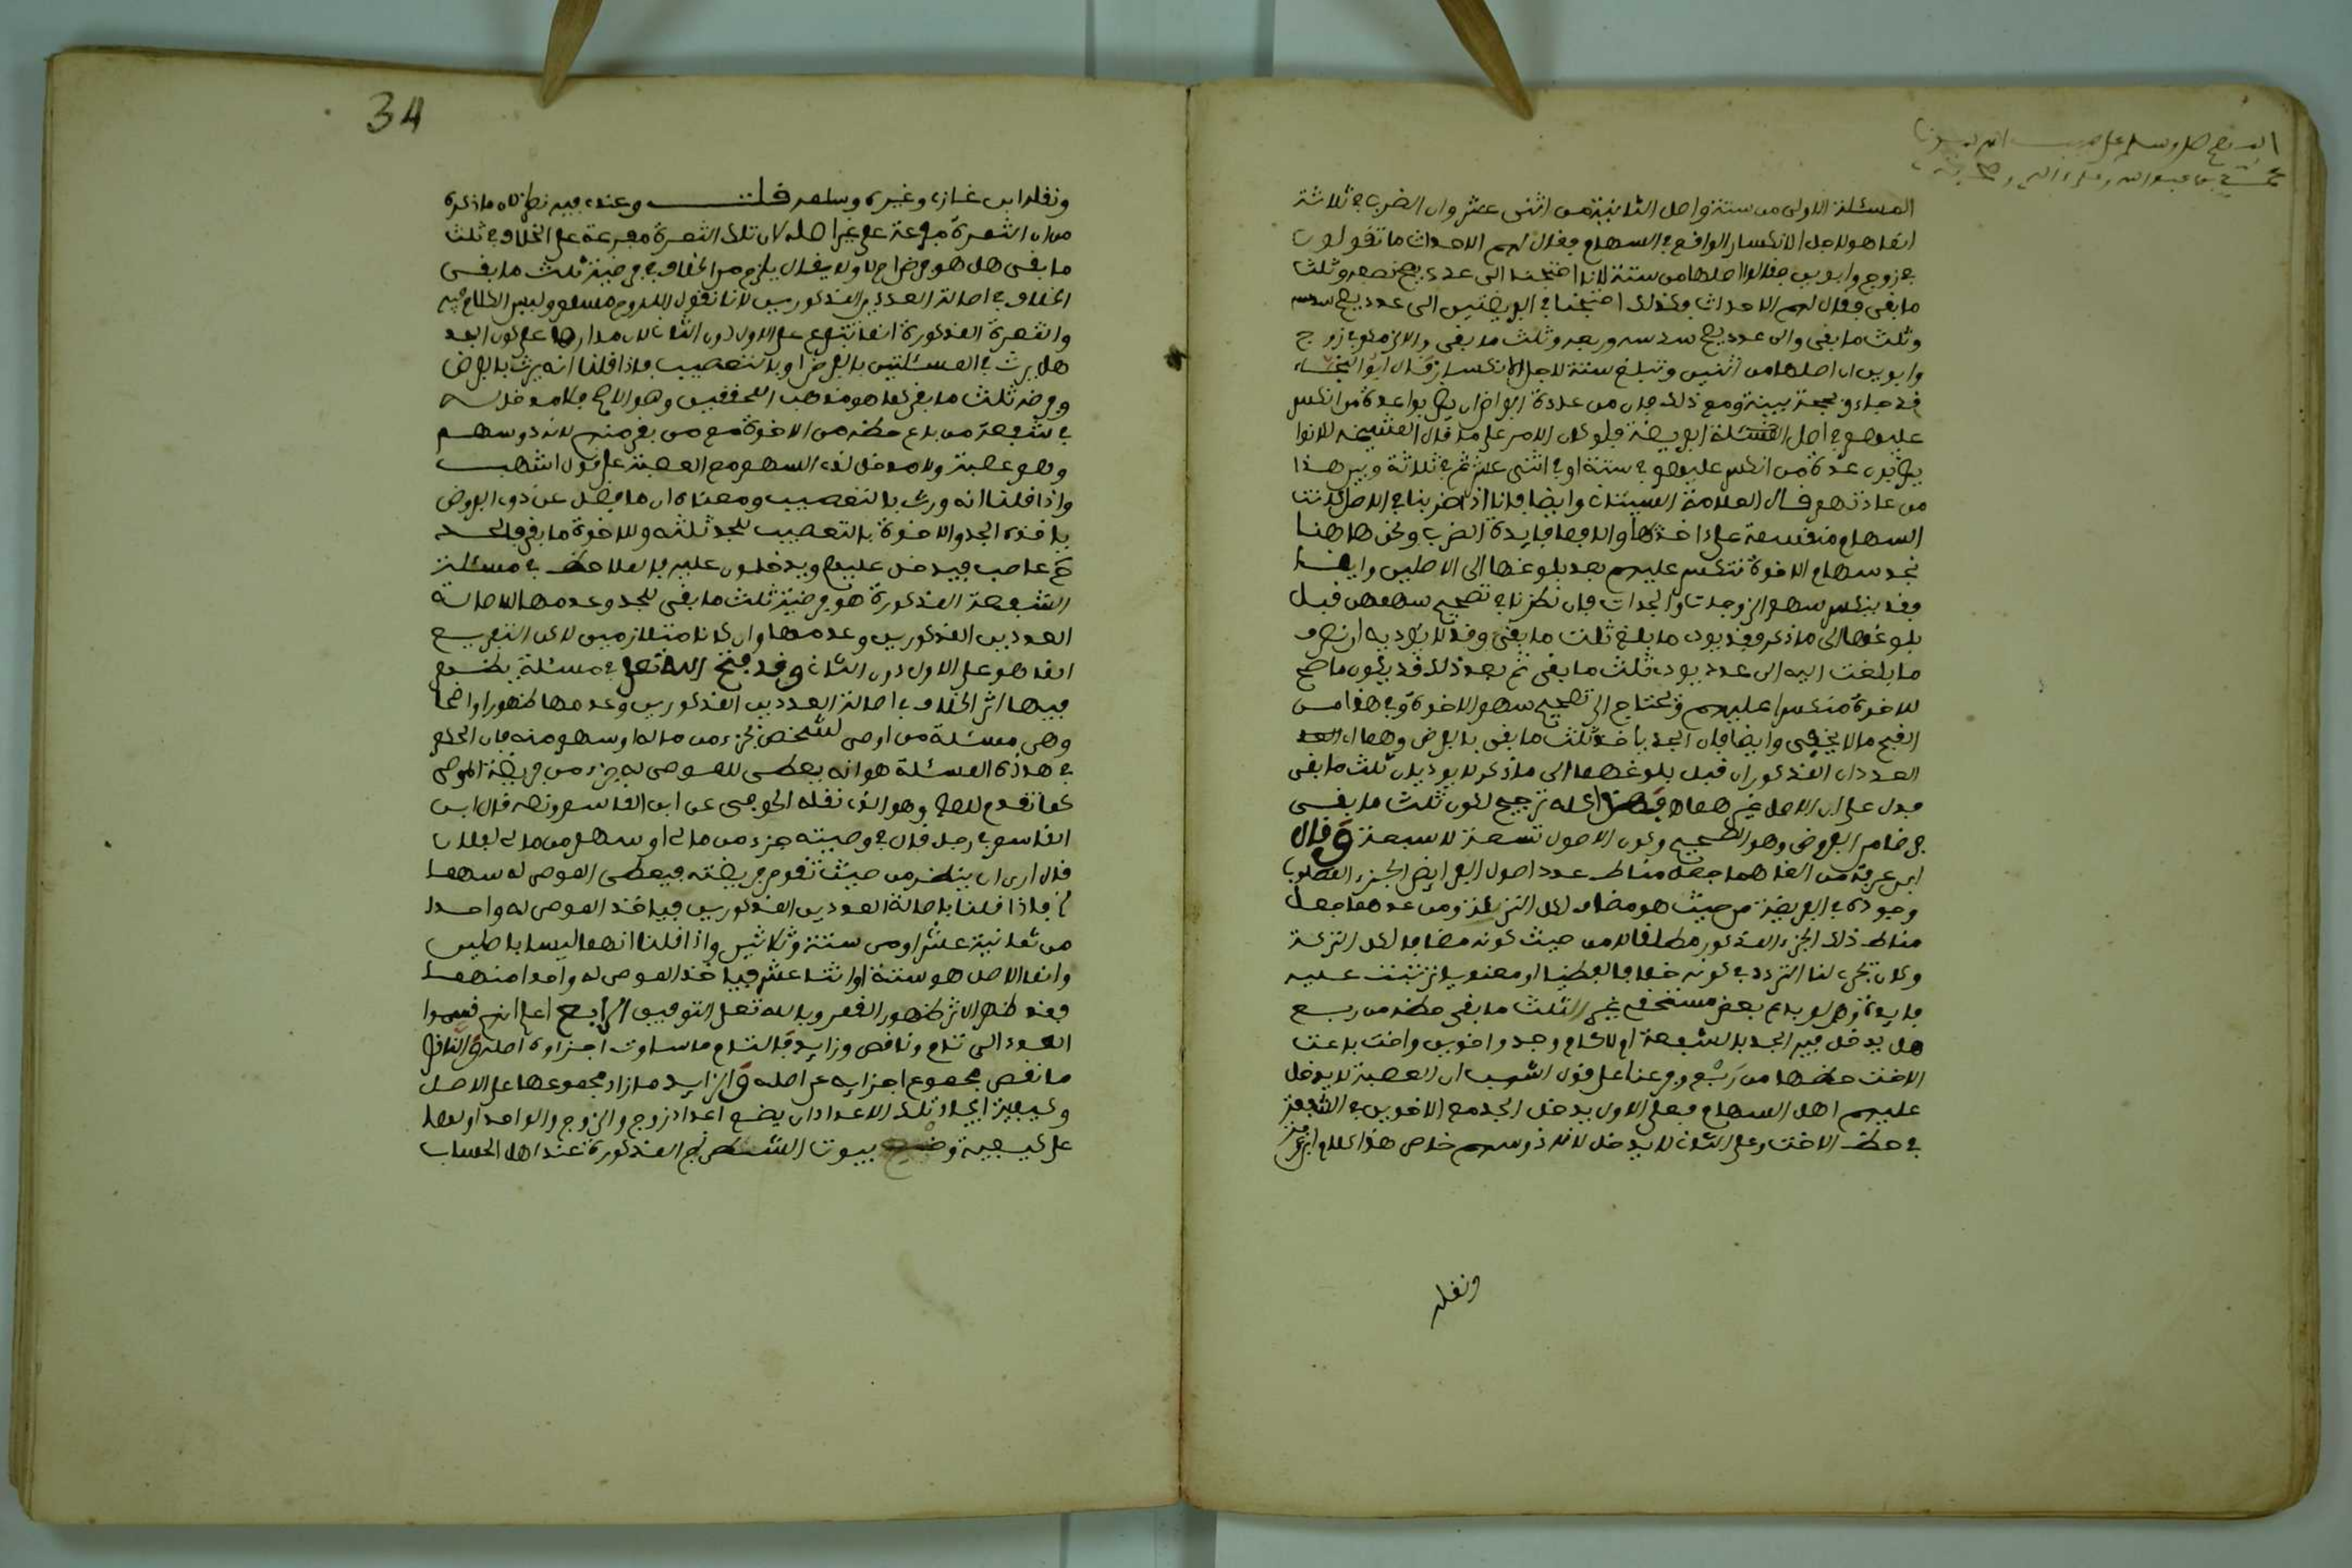 المسئلة الاولى من ستة واصل الثانية من اثنى عشر وان الضرب في ثلاثة
انما هو لاجل الانكسار الواقع في السهام فقال لهم الاحداث ما تقولون
في زوج وابوين فقالوا اصلها من ستة لانا احتجنا الى عدد يصح نصفه وثلث
ما بقى فقال لهم الاحداث وكذلك احتجنا في الفريضتين الى عدد يصح سدسه
وثلث ما بقى والى عدد يصح سدسه وربعه وثلث ما بقى والالزمكم في زوج
وابوين ان اصلها من اثنين وتبلغ ستة لاجل الانكسار قال ابو النجاء
فجاءو بحجة بينة ومع ذلك فان من عادة الفراض ان يضربوا عدة من انكسر
عليهم في اصل المسئلة الفريضة فلو كان الامر على ما قال المشيخة لكانوا
يضربون عدة من انكسر عليهم في ستة او في اثنى عشر ثم في ثلاثة وليس هذا
من عادتهم قال العلامة السيتاني وايضا فانا اذا ضربنا في الاصل كانت
السهام منقسمة على اخذها والا فما فايدة الضرب ونحن هاهنا
نجد سهام الاخوة تنكسر عليهم بعد بلوغها الى الاصلين وايضا
فقد ينكسر سهم الزوجات والجدات فان نظرنا في تصحيح سهمهن قبل
بلوغها الى ما ذكر فقد يوجد ما يبلغ ثلث ما بقى وقد لا يؤديه او نصرف
ما بلغت اليه الى عدد يوجد ثلث ما بقى ثم بعد ذلك قد يكون ما صح
للاخوة منكسرا عليهم ونحتاج الى تصحيح سهم الاخوة وفي هذا من
القبح ما لا يخفى وايضا فان الجد ياخذ ثلث ما بقى بالفرض وهما اي
العددان المذكوران قبل بلوغهما الى ما ذكر لا يوديان ثلث ما بقى
فدل على ان الاصل غيرهما وهذا كله ترجيح لكون ثلث ما بقى
فرضا من الفروض وهو الصحيح وكون الاصول تسعة لا سبعة وقال
ابن عرفة من الغاهما جعل مناط عدد اصول الفرايض الجزء المطلوب
وجوده في الفريضة من حيث هو مضاف لكل التركة ومن عدهما جعل
مناط ذلك الجزء المذكور مطلقا لا من حيث كونه مضافا لكل التركة
وكان يجري لنا التردد في كونه خلافا لفظيا او معنويا تثبت عليه
فايدة وهي لو باع بعض مستحقي غير الثلث ما بقى حظه من ربع
هل يدخل فيه الجد بالشفعة ام لا كام وجد واخوين واخت باعت
الاخت حظها من ربع وفرعنا على قول اشهب ان العصبة لا يدخل
عليهم اهل السهام فعلى الاول يدخل الجد مع الاخوين في الشفعة
في حظ الاخت وعلى الثاني لا يدخل لانه ذو سهم خاص هذا كلام ابن عرفة
ونقله
34
ونقله ابن غازي وغيره وسلمه قلت وعندي فيه نظر لان ما ذكره
من ان الثمرة مفرعة على غير اصله لان تلك الثمرة مفرعة على الخلاف في ثلث
ما بقى هل هو فرض ام لا ولا يقال يلزم من الخلاف في فرضية ثلث ما بقى
الخلاف في اصالة العددين المذكورين لانا نقول اللزوم مسلم وليس الكلام فيه
والثمرة المذكورة انما تتفرع على الاول دون الثاني لان مدارها على كون الجد
هل يرث في المسئلتين بالفرض او بالتعصيب فاذا قلنا انه يرث بالفرض
وفرضه ثلث ما بقى كما هو مذهب المحققين وهو الاصح فلا مدخل له
في شفعة من باع حظه من الاخوة مع من بقى منهم لانه ذو سهم
وهم عصبة ولا مدخل لذي السهم مع العصبة على قول اشهب
واذا قلنا انه ورث بالتعصيب ومعناه ان ما فضل عن ذوي الفروض
ياخذه الجد والاخوة بالتعصيب للجد ثلثه وللاخوة ما بقى فالجد
ح عاصب فيدخل عليهم ويدخلون عليه فالملاحظ في مسئلة
الشفعة المذكورة هو فرضية ثلث ما بقى للجد وعدمها لا اصالة
العددين المذكورين وعدمها وان كانا متلازمين لاكن التفريع
انما هو على الاول دون الثاني وقد فتح الله تعلى في مسئلة يظهر
فيها اثر الخلاف في اصالة العددين المذكورين وعدمها ظهورا واضحا
وهي مسئلة من اوصى لشخص بجزء من ماله او سهم منه فان الحكم
في هذه المسئلة هو انه يعطى للموصى له جزء من فريضة الموصي
كما تقدم للمص وهو الذي نقله الحوفي عن ابن القاسم ونصه قال ابن
القاسم في رجل قال في وصيته جزء من مالي او سهم من مالي لفلان
قال ارى ان ينظر من حيث تقوم فريضته فيعطى الموصى له سهما
فاذا قلنا باصالة العددين المذكورين فياخذ الموصى له واحدا
من ثمانية عشر او من ستة وثلاثين واذا قلنا انهما ليسا باصلين
وانما الاصل هو ستة او اثنا عشر فياخذ الموصى له واحدا منهما
فقد ظهر الاثر ظهور القمر وبالله تعلى التوفيق الرابع اعلم انهم قسموا
العدد الى تام وناقص وزايد فالتام ما ساوت اجزاوه اصله والناقص
ما نقص مجموع اجزايه عن اصله والزايد ما زاد مجموعها على الاصل
وكيفية ايجاد تلك الاعداد ان يضع اعداد زوج الزوج والواحد اولها
على كيفية وضع بيوت الشطرنج المذكورة عند اهل الحساب